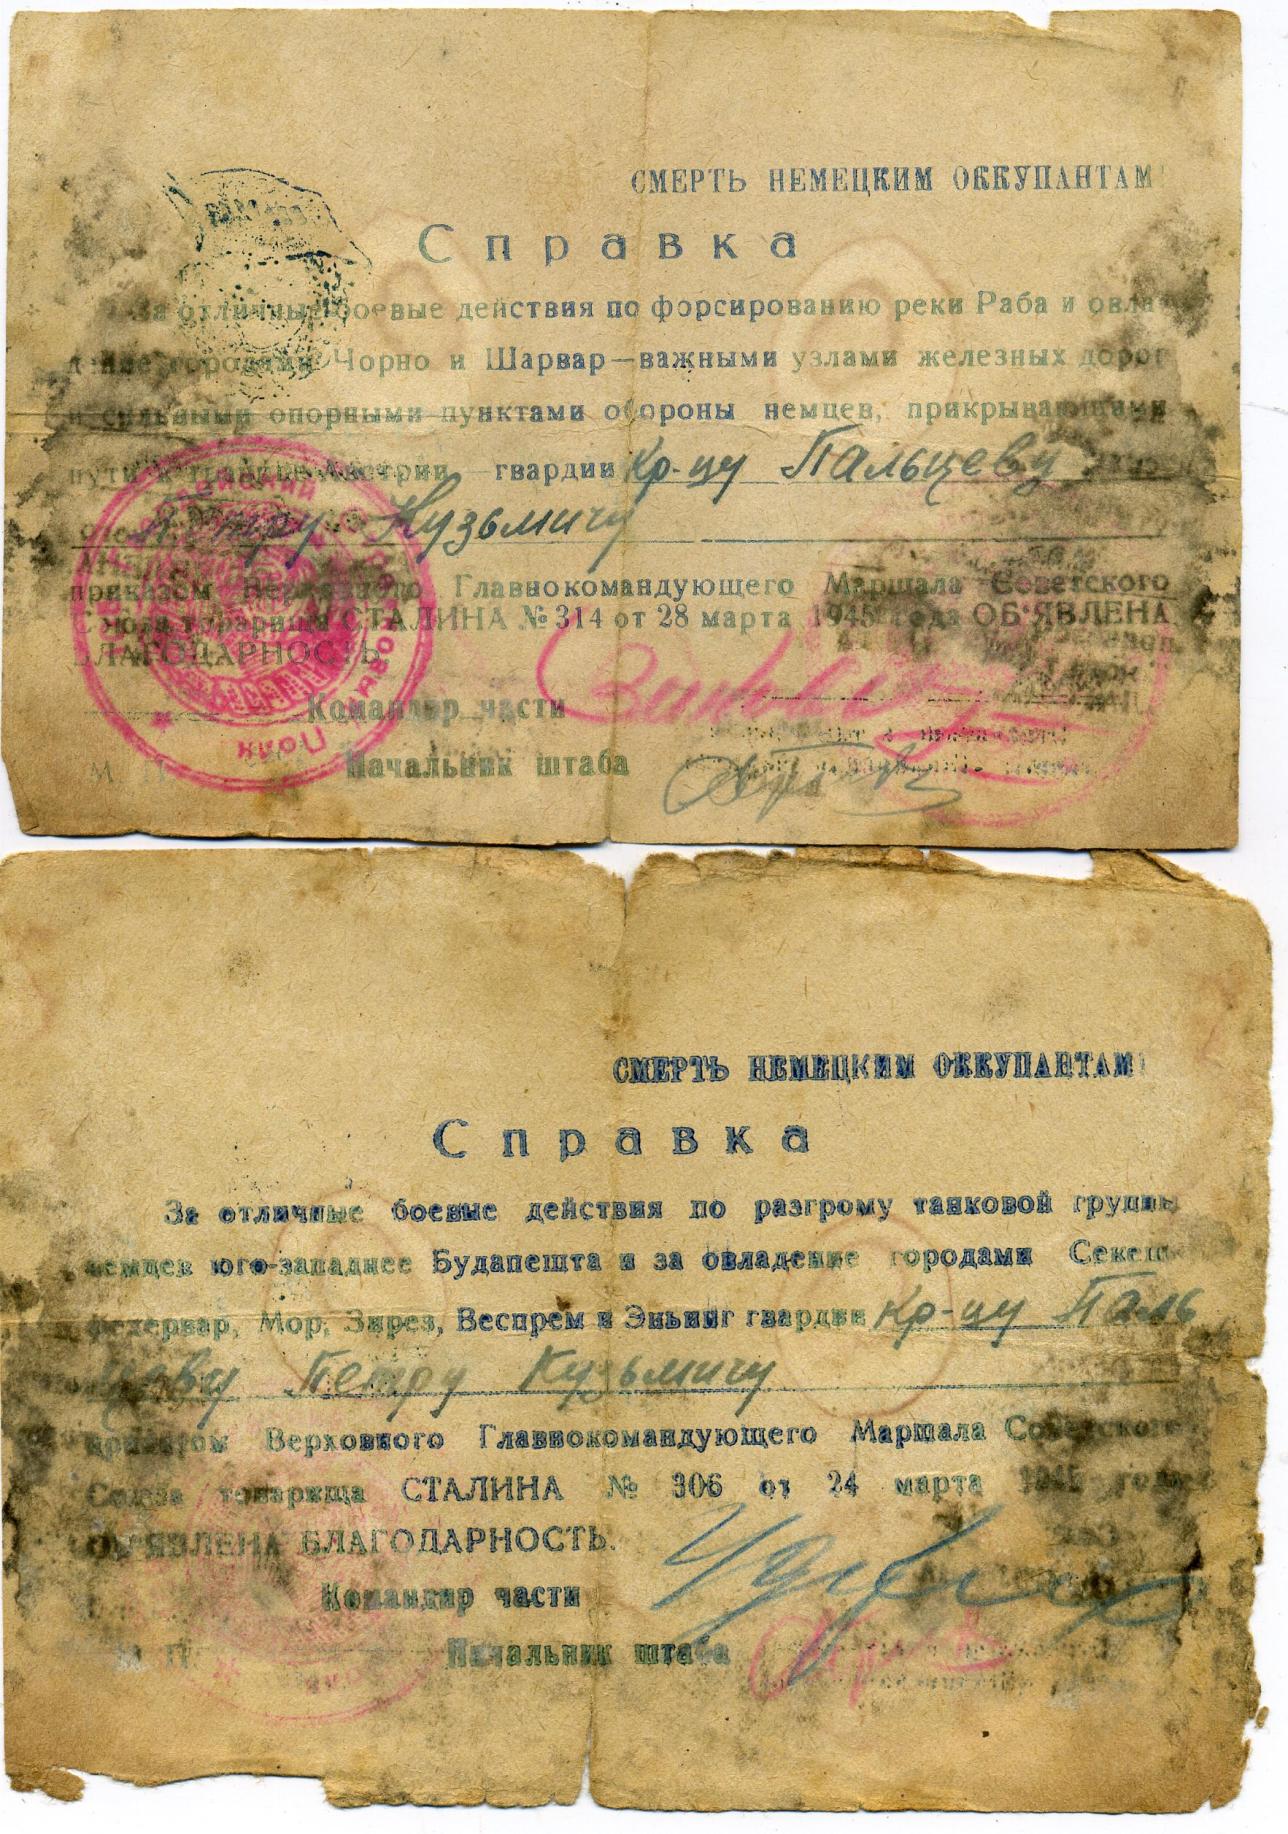 СМЕРТЬ НЕМЕЦКИМ ОККУПАНТАМ!
Справка
За отличные боевые действия по форсированию реки Раба и овла-
дение городами Чорно и Шарвар—важными узлами железных дорог
и сильными опорными пунктами обороны немцев, прикрывающими
пути к границе Австрии, гвардии кр-цу Пальцеву
Петру Кузьмичу
приказом Верховного Главнокомандующего Маршала Советского
Союза товарища СТАЛИНА № 314 от 28 марта 1945 года ОБ'ЯВЛЕНА
БЛАГОДАРНОСТЬ.
Командир части
М. П.
Начальник штаба
Полк
СМЕРТЬ НЕМЕЦКИМ ОККУПАНТАМ!
Справка
За отличные боевые действия по разгрому танковой группы
немцев юго-западнее Будапешта и за овладение городами Секеш-
фехервар, Мор, Зирез, Веспрем и Эньинг гвардии кр-цу Паль
цеву Петру Кузьмичу
приказом Верховного Главнокомандующего Маршала Советского
Союза товарища СТАЛИНА № 306 от 24 марта 1945 года
ОБ'ЯВЛЕНА БЛАГОДАРНОСТЬ.
Командир части
М. П.
Начальник штаба